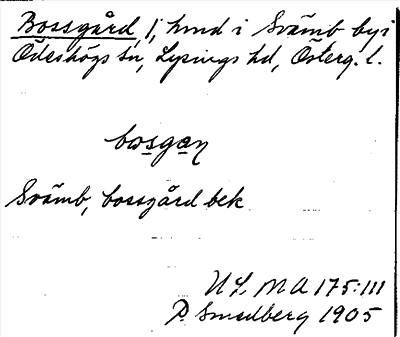 Bossgård, 1; hmd i Svämb by i
Ödeshögs sn, Lysings hd, Österg. l.
bosgaɳ
Svämb, bossgård bek
ULMA 175:111
P Smedberg 1905